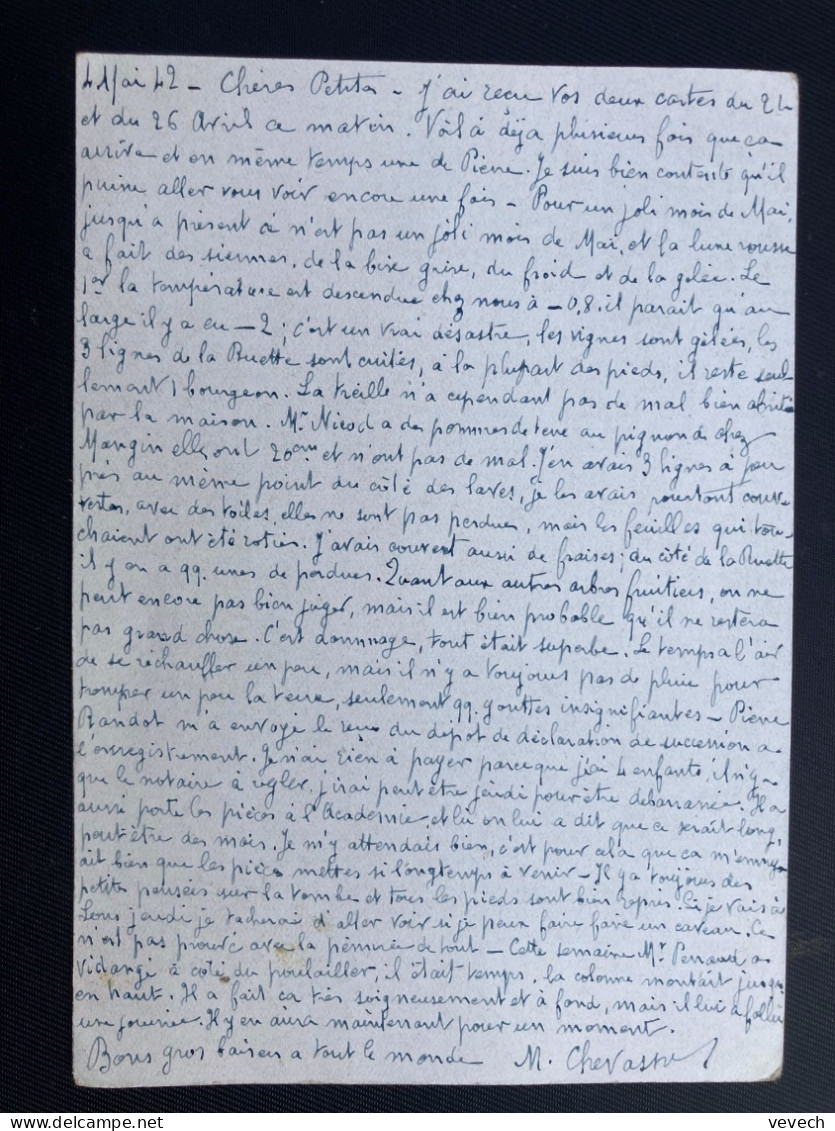 4 Mai 42 - Chères Petites - J'ai reçu vos deux cartes du 24
et du 26 Avril ce matin. Voilà déja plusieurs fois que ça
arrive et en même temps une de Pierre. Je suis bien contente qu'il
puisse aller vous voir encore une fois - Pour un joli mois de Mai,
jusqu'à présent ce n'est pas un joli mois de Mai, et la lune rousse
a fait des siennes, de la bise grise, du froid et de la gelée. Le
1er la température est descendue chez nous à -0,8. il parait qu'au
large il y a eu -2; c'est un vrai désastre, les vignes sont gelées, les
3 lignes de la Ruette sont cuites, à la plupart des pieds, il reste seul-
lement 1 bourgeon. La treille n'a cependant pas de mal bien abritée
par la maison. Mr Nicod a des pommes de terre au pignon de chez
Mangin elles ont 20cm et n'ont pas de mal. J'en avais 3 lignes à peu
près au même point du côté des laves, je les avais pourtant couv-
vertes, avec des toiles, elles ne sont pas perdues, mais les feuilles qui tou-
chaient ont été roties. J'avais couvert aussi de fraises; du côté de la Ruette
il y en a qq. unes de perdues. Quant aux autres arbres fruitiers, on ne
peut encore pas bien juger, mais il est bien probable qu'il ne restera
pas grand chose. C'est dommage, tout était superbe. Le temps a l'air
de se réchauffer un peu, mais il n'y a toujours pas de pluie pour
tremper un peu la terre, seulement qq. gouttes insignifiantes - Pierre
Randot m'a envoyé le reçu du dépot de déclaration de succession a
l'enregistrement. Je n'ai rien à payer parce que j'ai 4 enfants, il n'y a
que le notaire à régler, j'irai peut être jeudi pour être débarrassée. Il a
aussi porté les pièces à l'Académie, et lui on lui a dit que ce serait long,
peut être des mois. Je m'y attendais bien, c'est pour cela que ça m'ennuy-
ait bien que les pièces mettes si longtemps à venir - Il y a toujours des
petites pensées sur la tombe et tous les pieds sont bien repris. Si je vais à
Lons jeudi je tacherai d'aller voir si je peux faire faire un caveau. Ce
n'est pas prouvé avec la pénurie de tout - Cette semaine Mr Perraud a
vidangé à côté du poulailler, il était temps, la colonne montait jusqu'
en haut. Il a fait ça très soigneusement et à fond, mais il lui a fallu
une journée. Il y en aura maintenant pour un moment.
Bons gros baisers a tout le monde M. Chevassu
delcampe.net
vevech